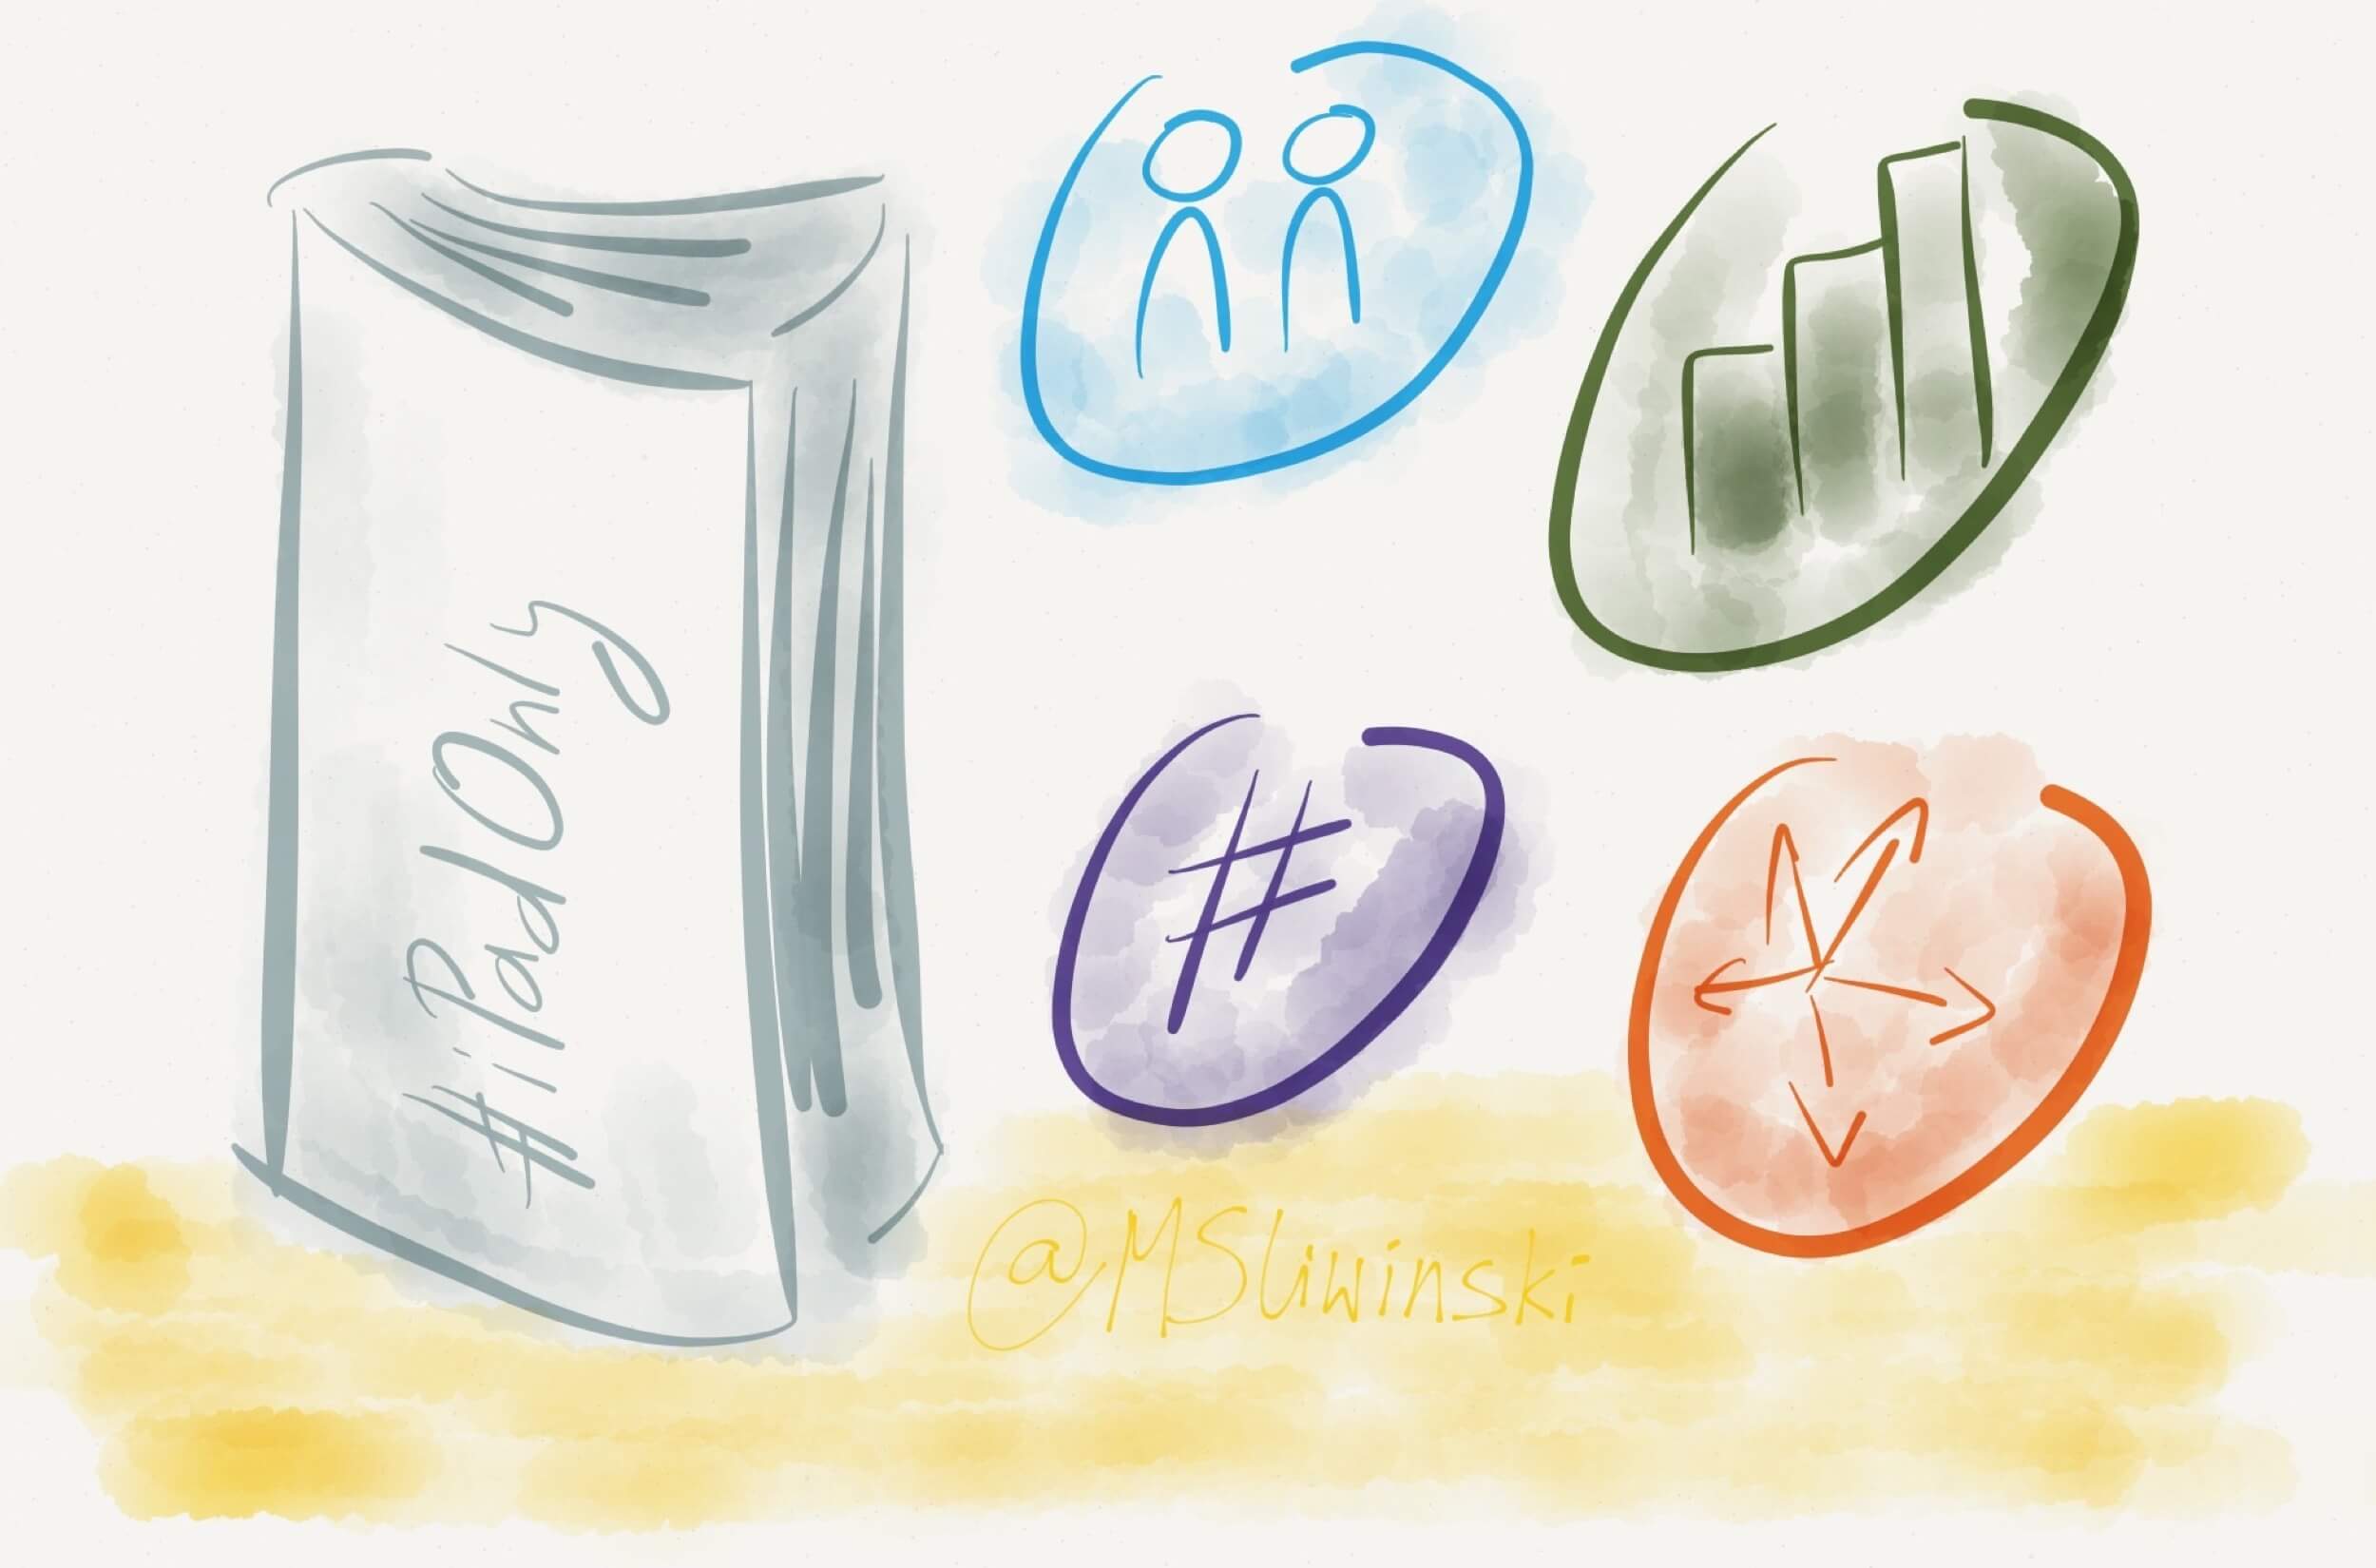 #iPadOnly
#
@MSliwinski